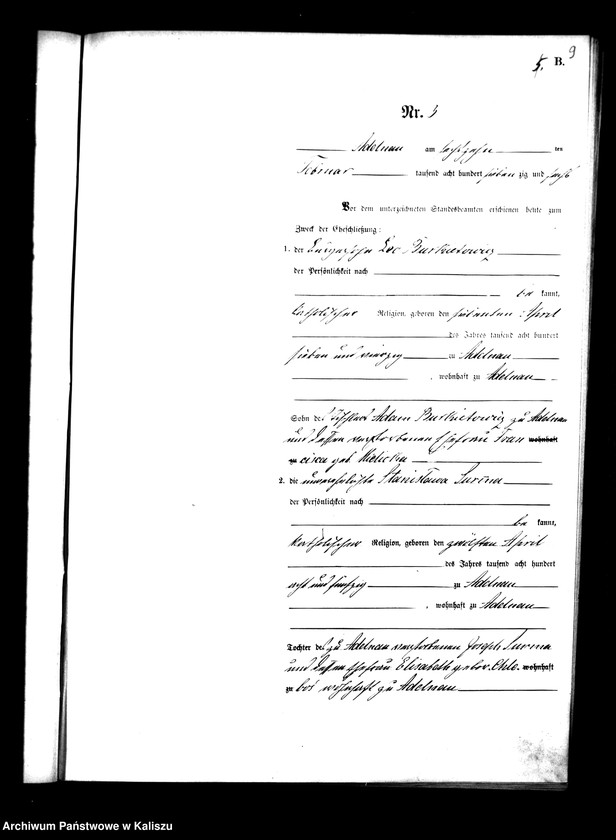 9
5. B.
Nr. 5
Adelnau am sechszehn ten
Februar tausend acht hundert sieben zig und sechs
Vor dem unterzeichneten Standesbeamten erschienen heute zum
Zweck der Eheschließung:
1. der Leo Burkietowicz
der Persönlichkeit nach
be kannt,
katholischer Religion, geboren den siebenten April
des Jahres tausend acht hundert
sieben und vierzig zu Adelnau
, wohnhaft zu Adelnau
Sohn des Tischlers Adam Burkietowicz zu Adelnau
und dessen verstorbenen Ehefrau Fran wohnhaft
zu cisca geb
2. die unverehelichte Stanislawa Surma
der Persönlichkeit nach
be kannt,
katholischer Religion, geboren den zwölften April
des Jahres tausend acht hundert
acht und fünfzig zu Adelnau
, wohnhaft zu Adelnau
Tochter des zu Adelnau verstorbenen Joseph Surma
und dessen Ehefrau Elisabeth gebor. Chle. wohnhaft
zu bos wohnhaft zu Adelnau
Archiwum Państwowe w Kaliszu